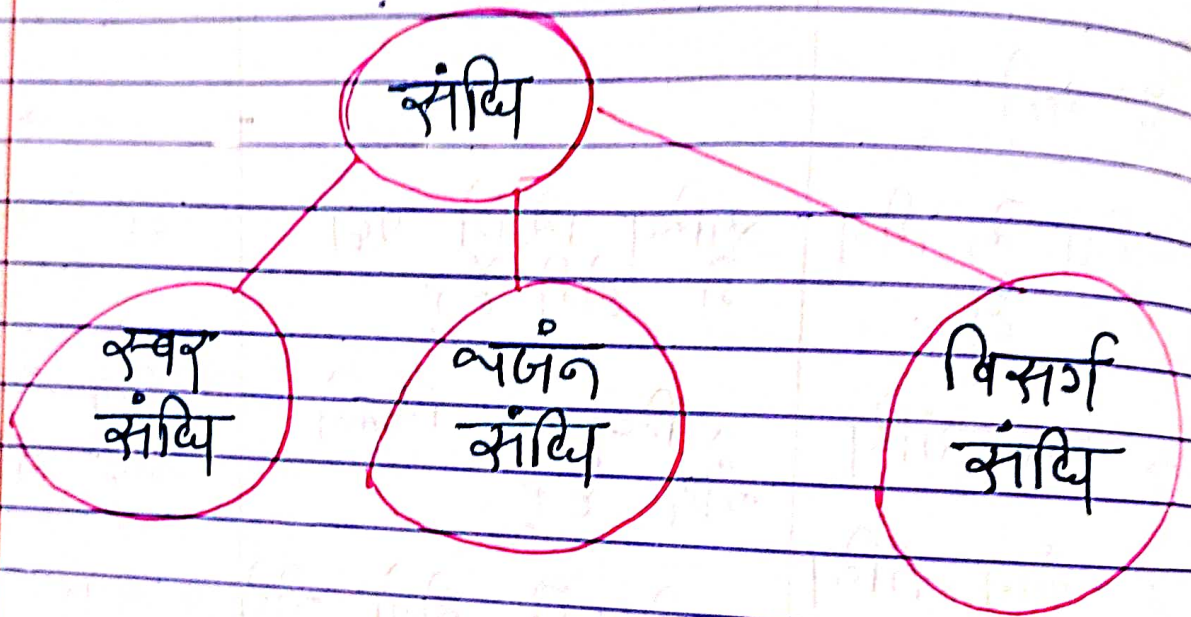 संधि
स्वर
संधि
व्यजंन
संधि
विसर्ग
संधि